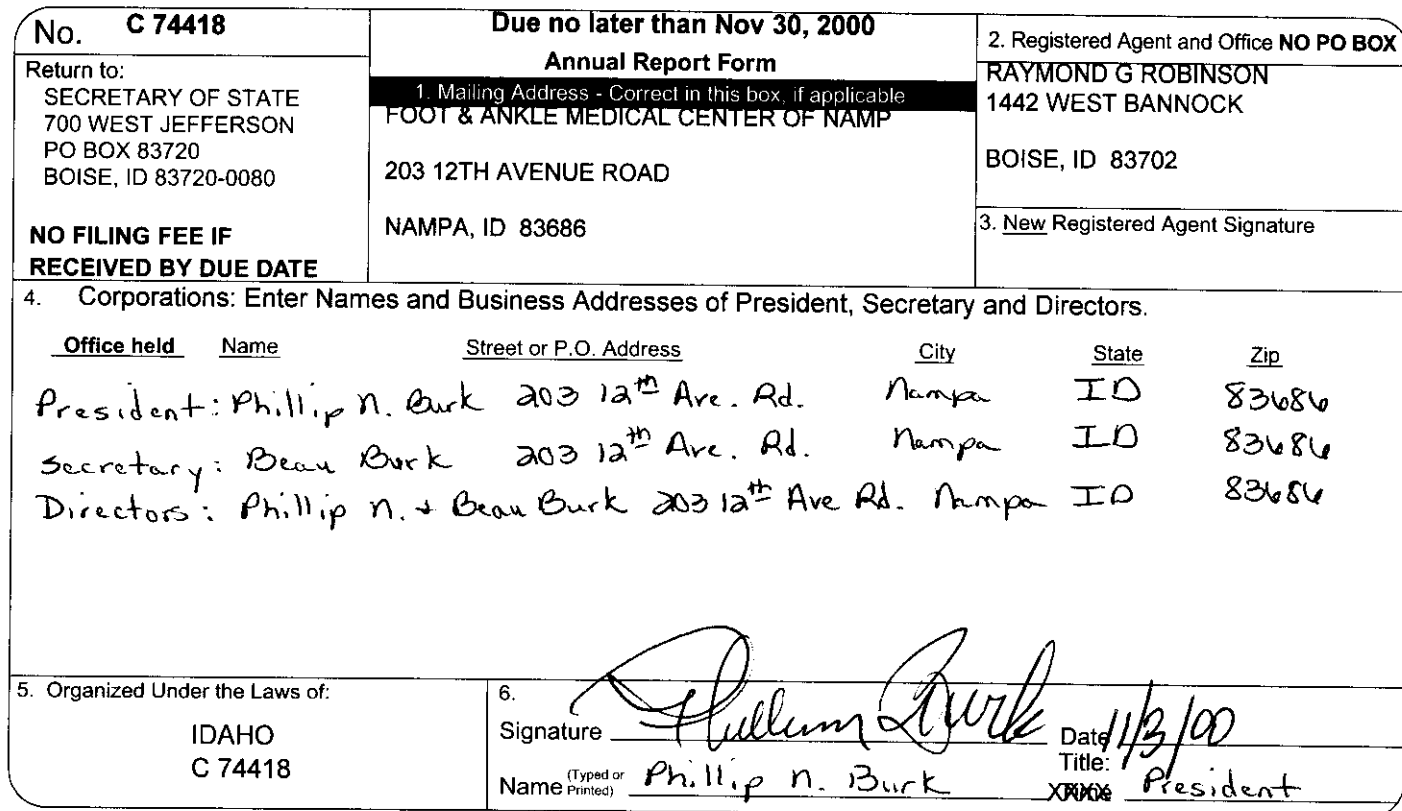 No. C 74418
Return to:
SECRETARY OF STATE
700 WEST JEFFERSON
PO BOX 83720
BOISE, ID 83720-0080
NO FILING FEE IF
RECEIVED BY DUE DATE
Due no later than Nov 30, 2000
Annual Report Form
1. Mailing Address - Correct in this box, if applicable
FOOT & ANKLE MEDICAL CENTER OF NAMP
203 12TH AVENUE ROAD
NAMPA, ID 83686
2. Registered Agent and Office NO PO BOX
RAYMOND G ROBINSON
1442 WEST BANNOCK
BOISE, ID 83702
3. New Registered Agent Signature
4. Corporations: Enter Names and Business Addresses of President, Secretary and Directors.
Office held Name Street or P.O. Address City State Zip
President: Phillip N. Burk 203 12th Ave. Rd. Nampa ID 83686
Secretary: Beau Burk 203 12th Ave. Rd. Nampa ID 83686
Directors: Phillip N. + Beau Burk 203 12th Ave Rd. Nampa ID 83686
5. Organized Under the Laws of:
IDAHO
C 74418
6.
Signature Burk Date 11/3/00
Name (Typed or Printed) Phillip N. Burk Title: President